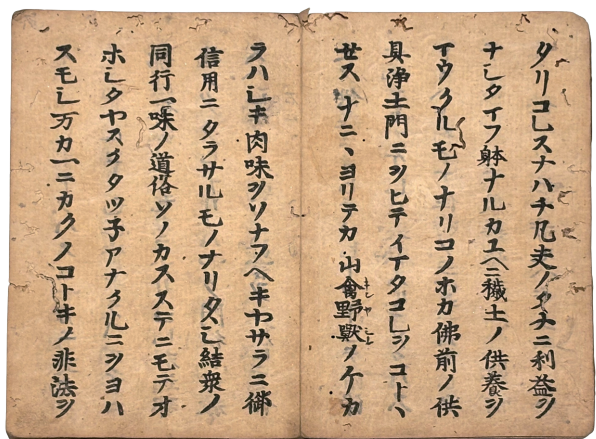 タリコレスナハチ凡夫ノタメニ利益ヲ
ナシタイフ躰ナルカユヘニ穢土ノ供養ヲ
イウクルモノナリコノホカ佛前ノ供
具浄土門ニヲヒテイマタコレヲコトヽ
せス ナニヽヨリテカ山禽野獸ノケカ
キンヤシウ
ラハシキ肉味ヲソナフヘキヤサラニ御
信用ニタラサルモノナリタシ結衆ノ
同行一味ノ道俗ソノカスステニモテオ
ホシタヤスクタツ子アナクルニヲヨハ
スモシ万カ一ニカクノコトキノ非法ヲ